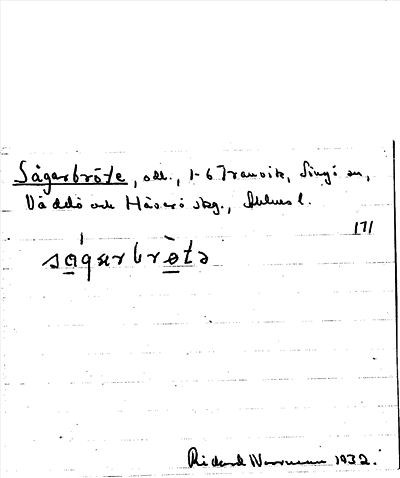 Sågarbröte, odl., 1-6 Tranvik, Singö sn,
Väddö och Häverö skg., Sthms l.
171
sågarbröta
Rickard Norrman 1932.